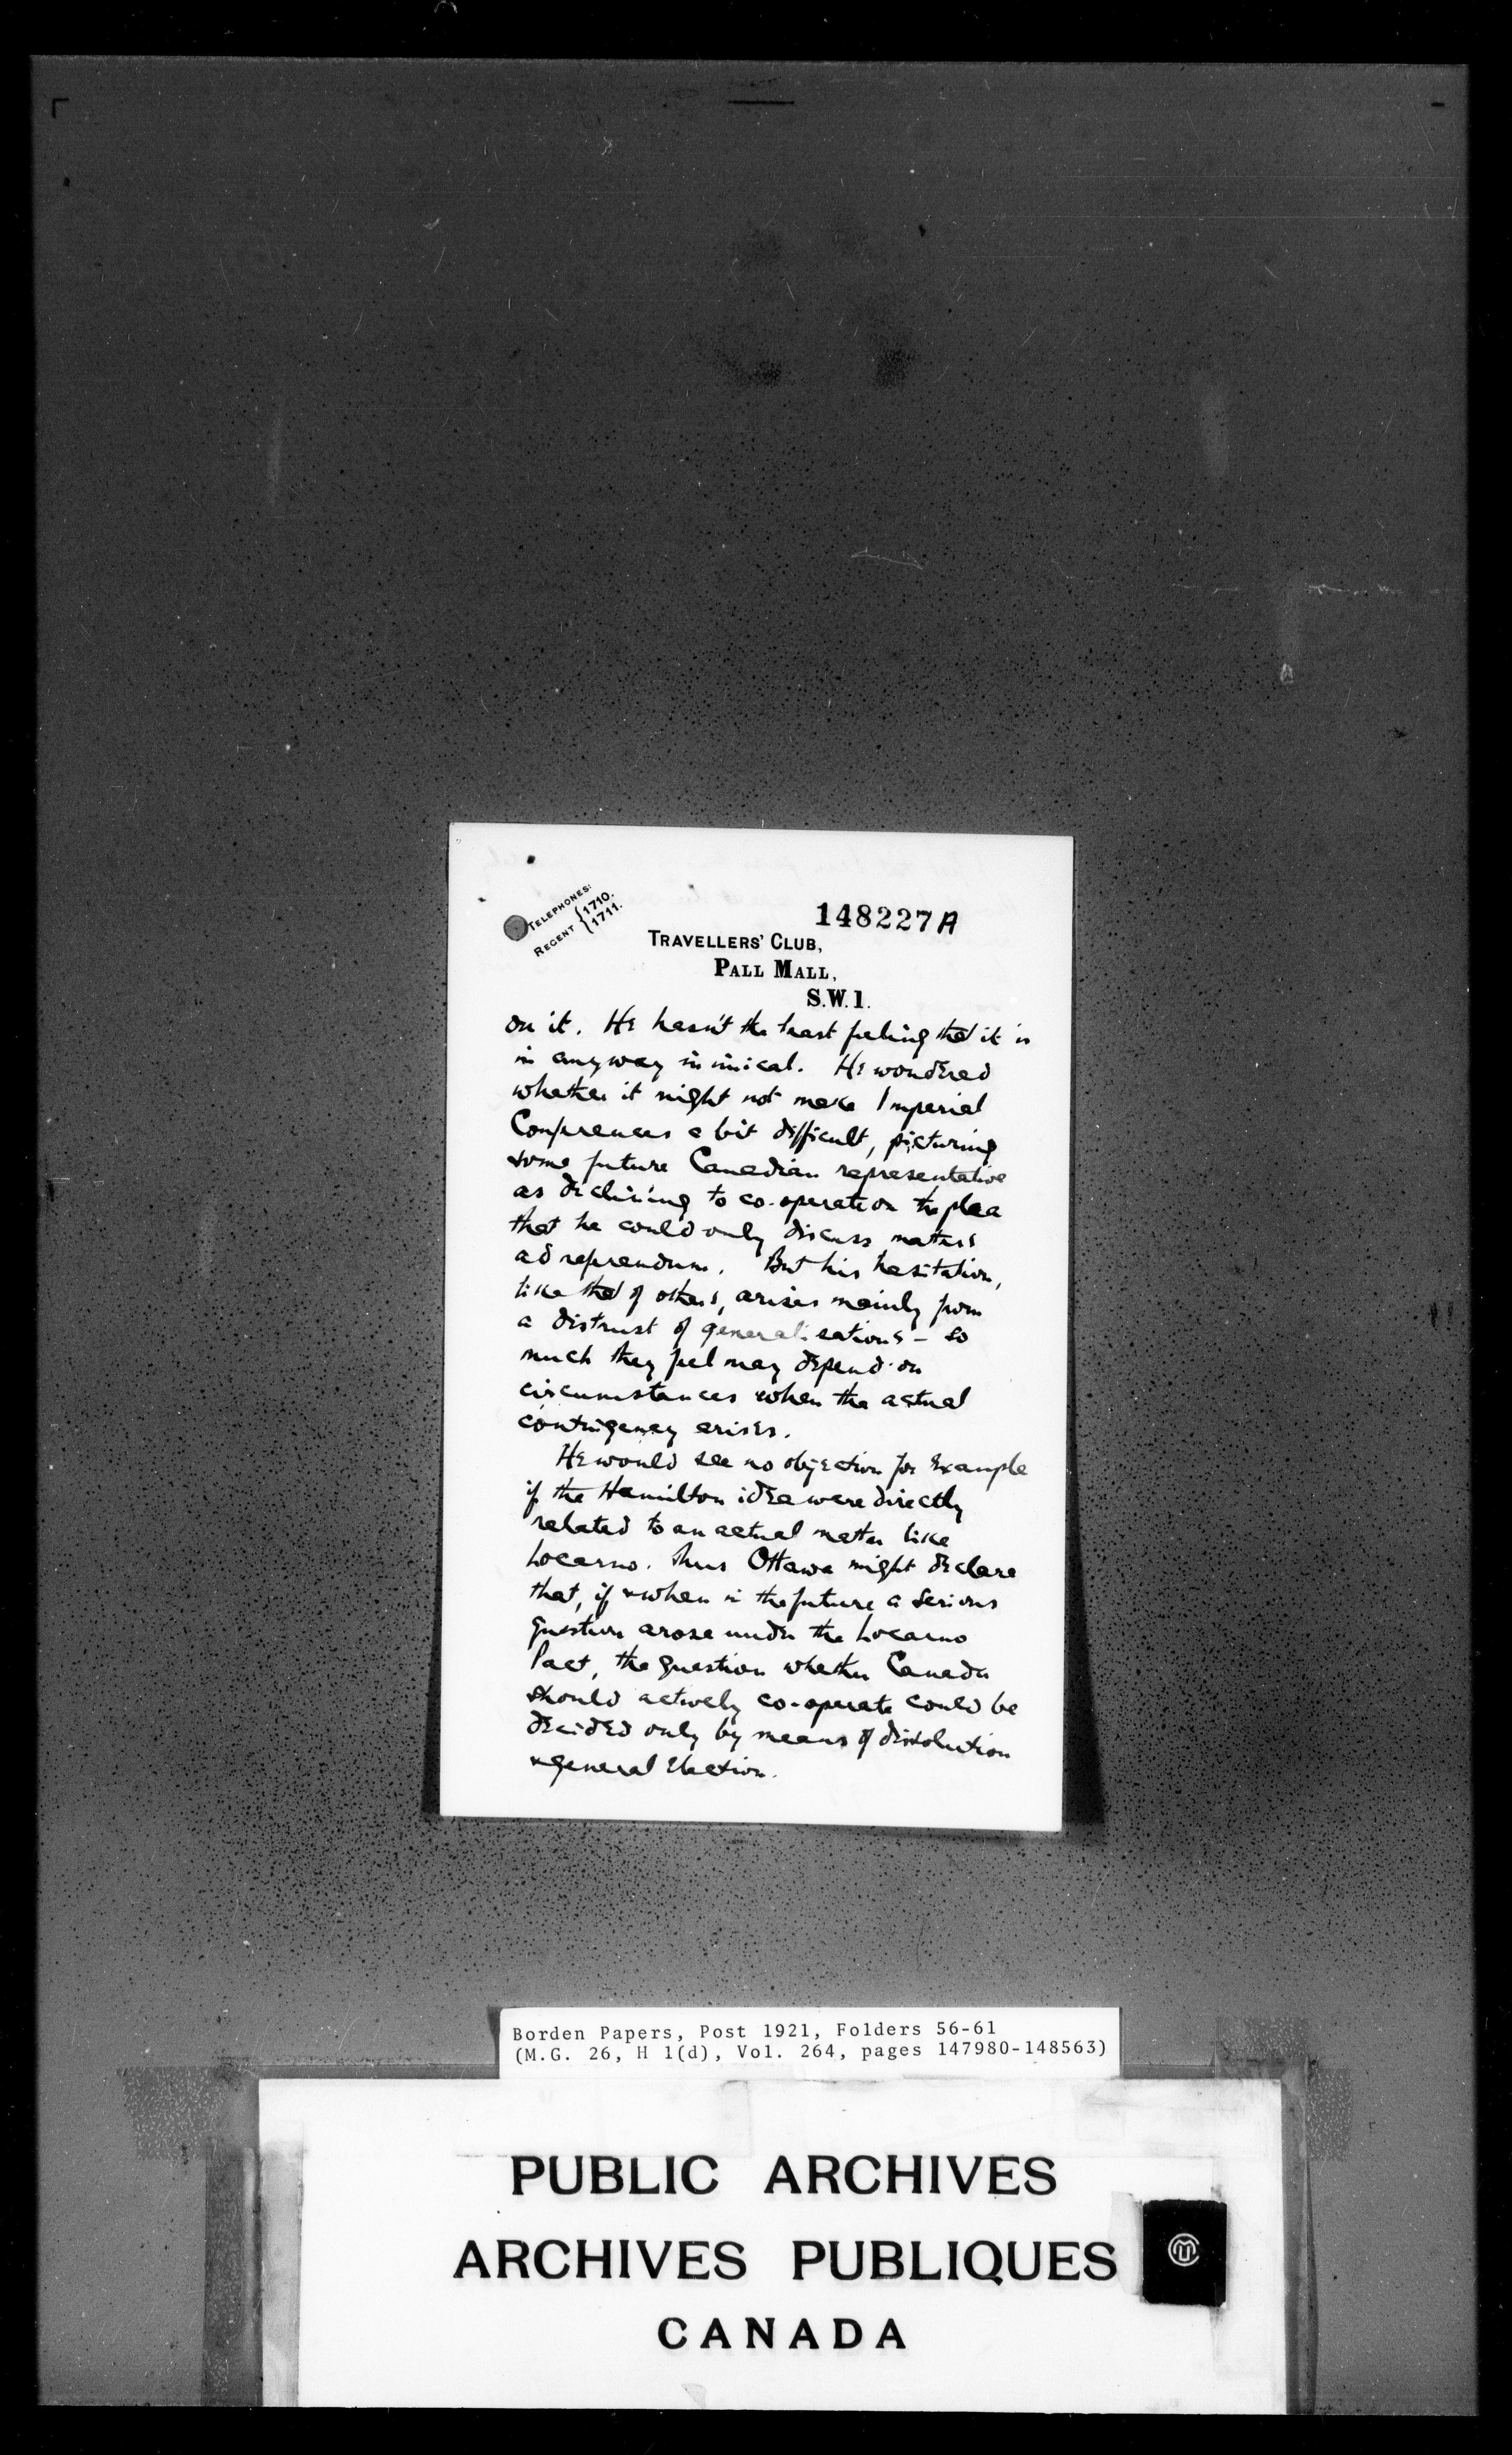 TELEPHONES:
REGENT {1710.
1711.
148227A
TRAVELLERS' CLUB,
PALL MALL,
S.W.1.
on it. He hasn't the least feeling that it is
in anyway inimical. He wondered
whether it might not make Imperial
Conferences a bit difficult, picturing
some future Canadian representative
as declining to co-operate on the plea
that he could only discuss matters
ad referendum. But his hesitation,
like that of others, arises mainly from
a distrust of generalisations - so
much they feel may depend on
circumstances when the actual
contingency arises.
He would see no objection for example
if the Hamilton idea were directly
related to an actual matter like
Locarno. Thus Ottawa might declare
that, if & when in the future a serious
question arose under the Locarno
Pact, the question whether Canada
should actively co-operate could be
decided only by means of dissolution
& general election.
Borden Papers, Post 1921, Folders 56-61
(M.G. 26, H 1(d), Vol. 264, pages 147980-148563)
PUBLIC ARCHIVES
ARCHIVES PUBLIQUES
CANADA